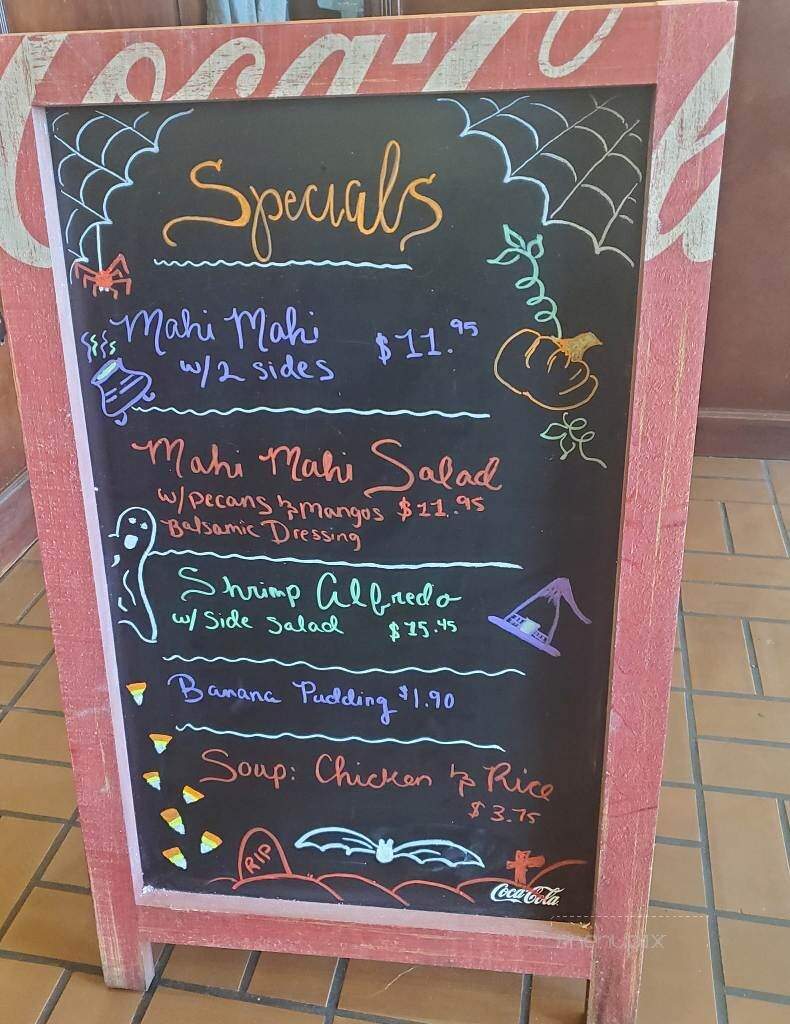 Coca-Cola
Specials
Mahi Mahi $11.95
w/2 sides
Mahi Mahi Salad
w/pecans & mangos $11.95
Balsamic Dressing
Shrimp Alfredo
w/ Side Salad $15.45
Banana Pudding $1.90
Soup: Chicken & Rice
$3.75
RIP
Coca-Cola
menupix